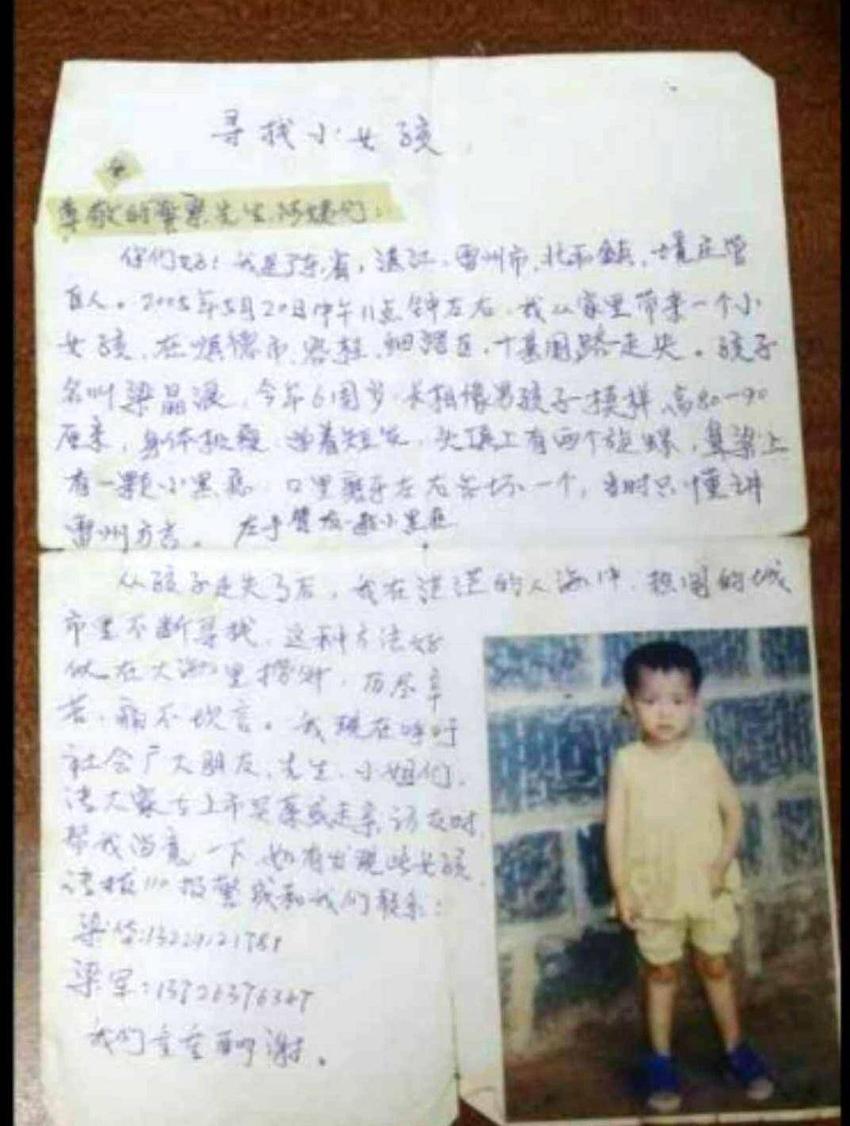 寻找小女孩
尊敬的警察先生、阿姨们:
你们好!我是广东省,湛江、雷州市、北和镇、
人。2005年5月20日中午11点钟左右,我从家里带来一个小
女孩、在顺德市、容桂、细滘区、十基围路走失。孩子
名叫梁晶浪、今年6周岁、长相像男孩子一模样、高80-90
厘米,身体很瘦、留着短发、头顶上有两个旋螺,鼻梁上
有一颗小黑痣、口里门牙左右各坏一个,当时只懂土讲
雷州方言。左手臂有一颗小黑痣
从孩子走失了后,我在茫茫的人海中,热闹的城
市里不断寻找,这种方法好
似在大海里捞针,历尽辛
苦,痛不堪言。我现在呼吁
社会广大朋友、先生、小姐们,
请大家去上市买菜或走亲访友时,
帮我留意一下,如有发现此女孩,
请拔110报警或和我们联系:
梁
梁军:
我们重重酬谢。